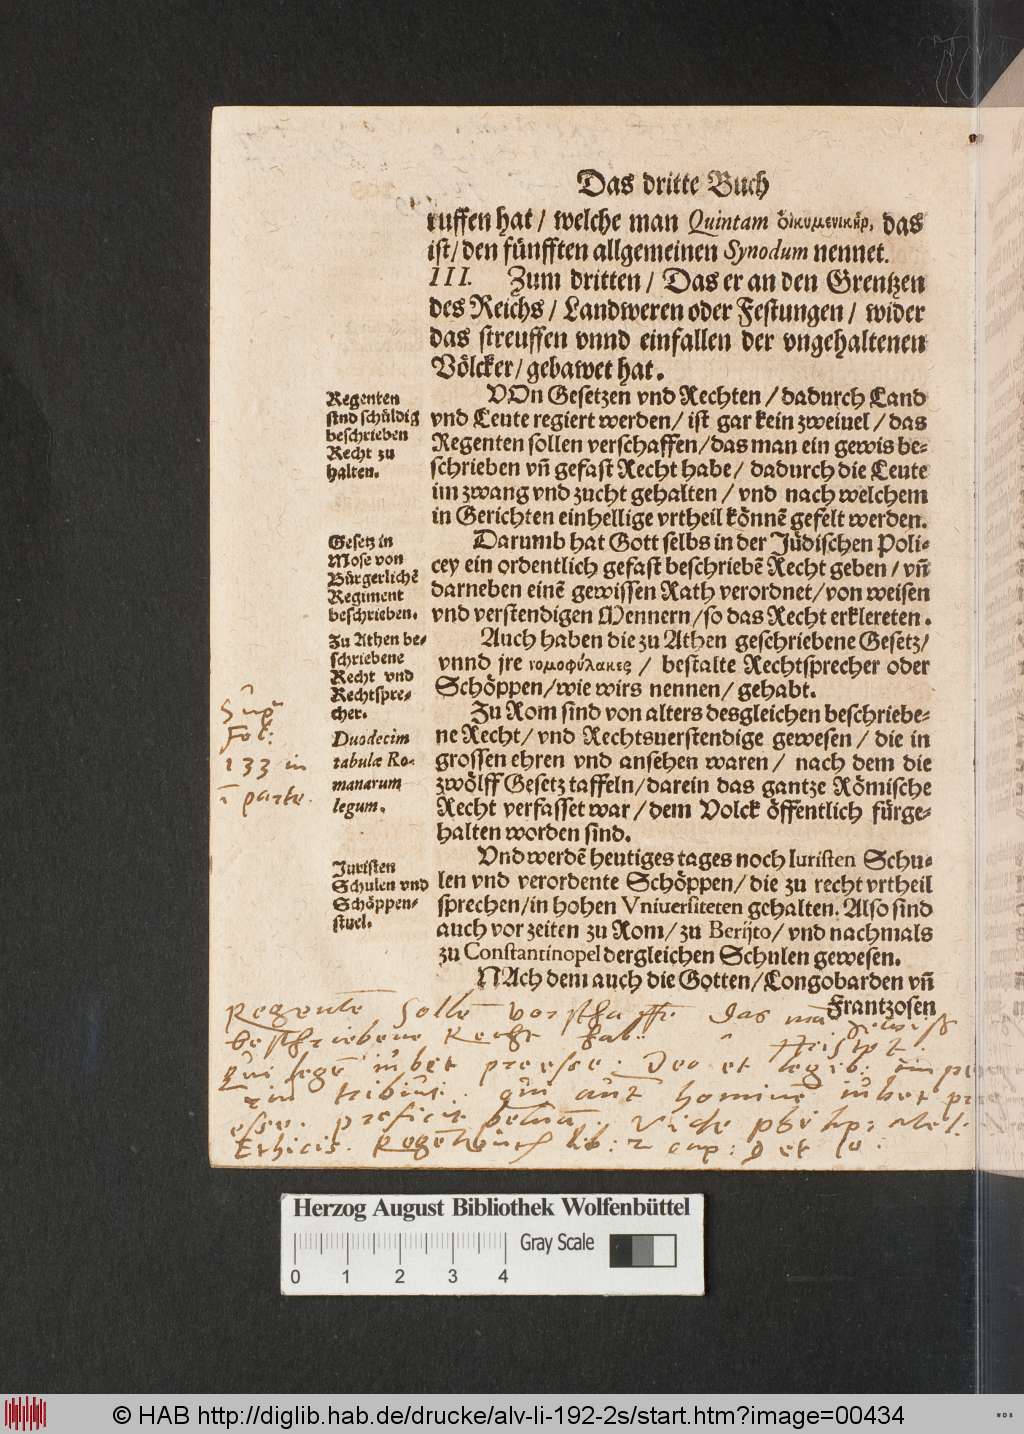 Das dritte Buch
ruffen hat / welche man Quintam das
ist / den fünfften allgemeinen Synodum nennet.
III. Zum dritten / Das er an den Grentzen
des Reichs / Landweren oder Festungen / wider
das streuffen vnnd einfallen der vngehaltenen
Völcker / gebawet hat.
Regenten
sind schüldig
beschrieben
Recht zu
halten.
VOn Gesetzen vnd Rechten / dadurch Land
vnd Leute regiert werden / ist gar kein zweiuel / das
Regenten sollen verschaffen / das man ein gewis be⸗
schrieben vn̄ gefast Recht habe / dadurch die Leute
im zwang vnd zucht gehalten / vnd nach welchem
in Gerichten einhellige vrtheil könnē gefelt werden.
Gesetz in
Mose von
Bürgerlichē
Regiment
beschrieben.
Darumb hat Gott selbs in der Jüdischen Poli⸗
cey ein ordentlich gefast beschriebē Recht geben / vn̄
darneben einē gewissen Rath verordnet / von weisen
vnd verstendigen Mennern / so das Recht erklereten.
Zu Athen be⸗
schriebene
Recht vnd
Rechtspre⸗
cher.
Auch haben die zu Athen geschriebene Gesetz /
vnnd jre νομοφύλακες / bestalte Rechtsprecher oder
Schöppen / wie wirs nennen / gehabt.
Fol:
133 in
parte.
Duodecim
tabulæ Ro-
manarum
legum.
Zu Rom sind von alters desgleichen beschriebe⸗
ne Recht / vnd Rechtsuerstendige gewesen / die in
grossen ehren vnd ansehen waren / nach dem die
zwölff Gesetz taffeln / darein das gantze Römische
Recht verfasset war / dem Volck öffentlich fürge⸗
halten worden sind.
Juristen
Schulen vnd
Schöppen⸗
stuel.
Vnd werdē heutiges tages noch Iuristen Schu⸗
len vnd verordente Schöppen / die zu recht vrtheil
sprechen / in hohen Vniuersiteten gehalten. Also sind
auch vor zeiten zu Rom / zu Berijto / vnd nachmals
zu Constantinopel dergleichen Schulen gewesen.
NAch dem auch die Gotten / Longobarden vn̄
Frantzosen
Regentē Sollē das
beschriebene Recht
legē iubet preesse. Deo et
hominē iubet
esse. Vide
Ethicis. lib: 2 cap: 9 et 10.
Herzog August Bibliothek Wolfenbüttel
Gray Scale
0 1 2 3 4
© HAB http://diglib.hab.de/drucke/alv-li-192-2s/start.htm?image=00434